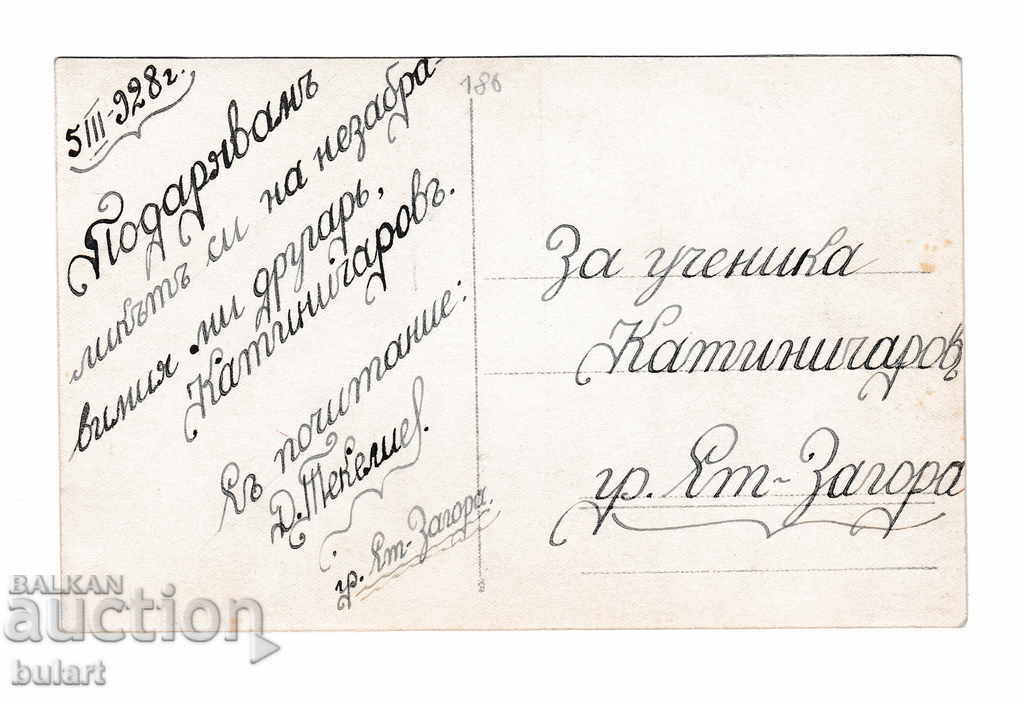 5 III-928 г.
Подарявамъ
ликътъ си на незабра-
вимия ми другарь,
Катиничаровъ.
Съ почитание:
Д. Текелиев.
гр. Ст-Загора.
186
За ученика
Катиничаровъ
гр. Ст-Загора
БАЛКАН
auction
bulart